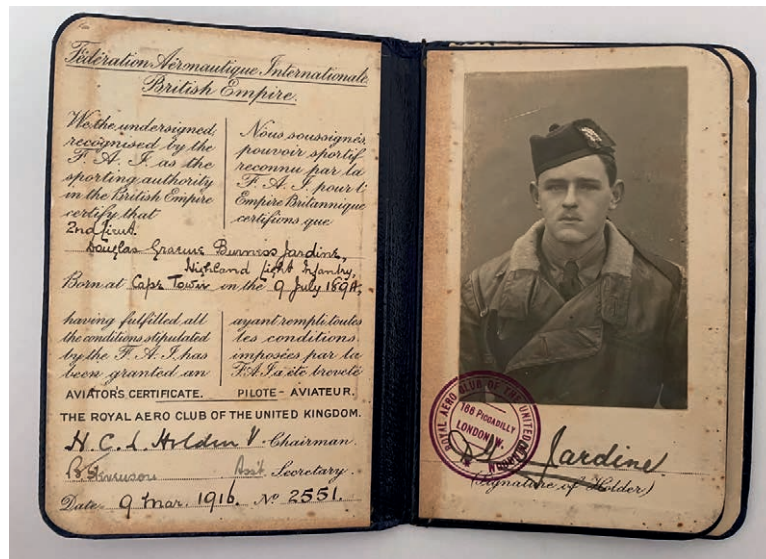 Fédération Aéronautique Internationale
British Empire.
We the undersigned
recognised by the
F. A. I. as the
sporting authority
in the British Empire
certify that
Nous soussignés
pouvoir sportif
reconnu par la
F. A. I. pour l'
Empire Britannique
certifions que
2nd Lieut.
Douglas Graeme Burness Jardine,
Highland Light Infantry,
Born at Cape Town on the 9 July 1894,
having fulfilled all
the conditions stipulated
by the F. A. I. has
been granted an
AVIATOR'S CERTIFICATE.
ayant rempli toutes
les conditions
imposées par la
F.A.I. a été breveté
PILOTE - AVIATEUR.
THE ROYAL AERO CLUB OF THE UNITED KINGDOM.
H. C. L. Holden V. Chairman
B. Stevenson Asst. Secretary
Date 9 Mar. 1916. No 2551.
ROYAL AERO CLUB OF THE UNITED KINGDOM
166 PICCADILLY
LONDON, W.
Jardine
(Signature of Holder)